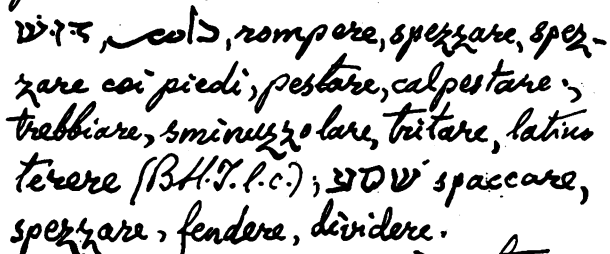 rompere, spezzare, spez-
zare coi piedi, pestare, calpestare,
trebbiare, sminuzzolare, tritare, latino
terere (B.H.T. l.c.); שסע spaccare,
spezzare, fendere, dividere.